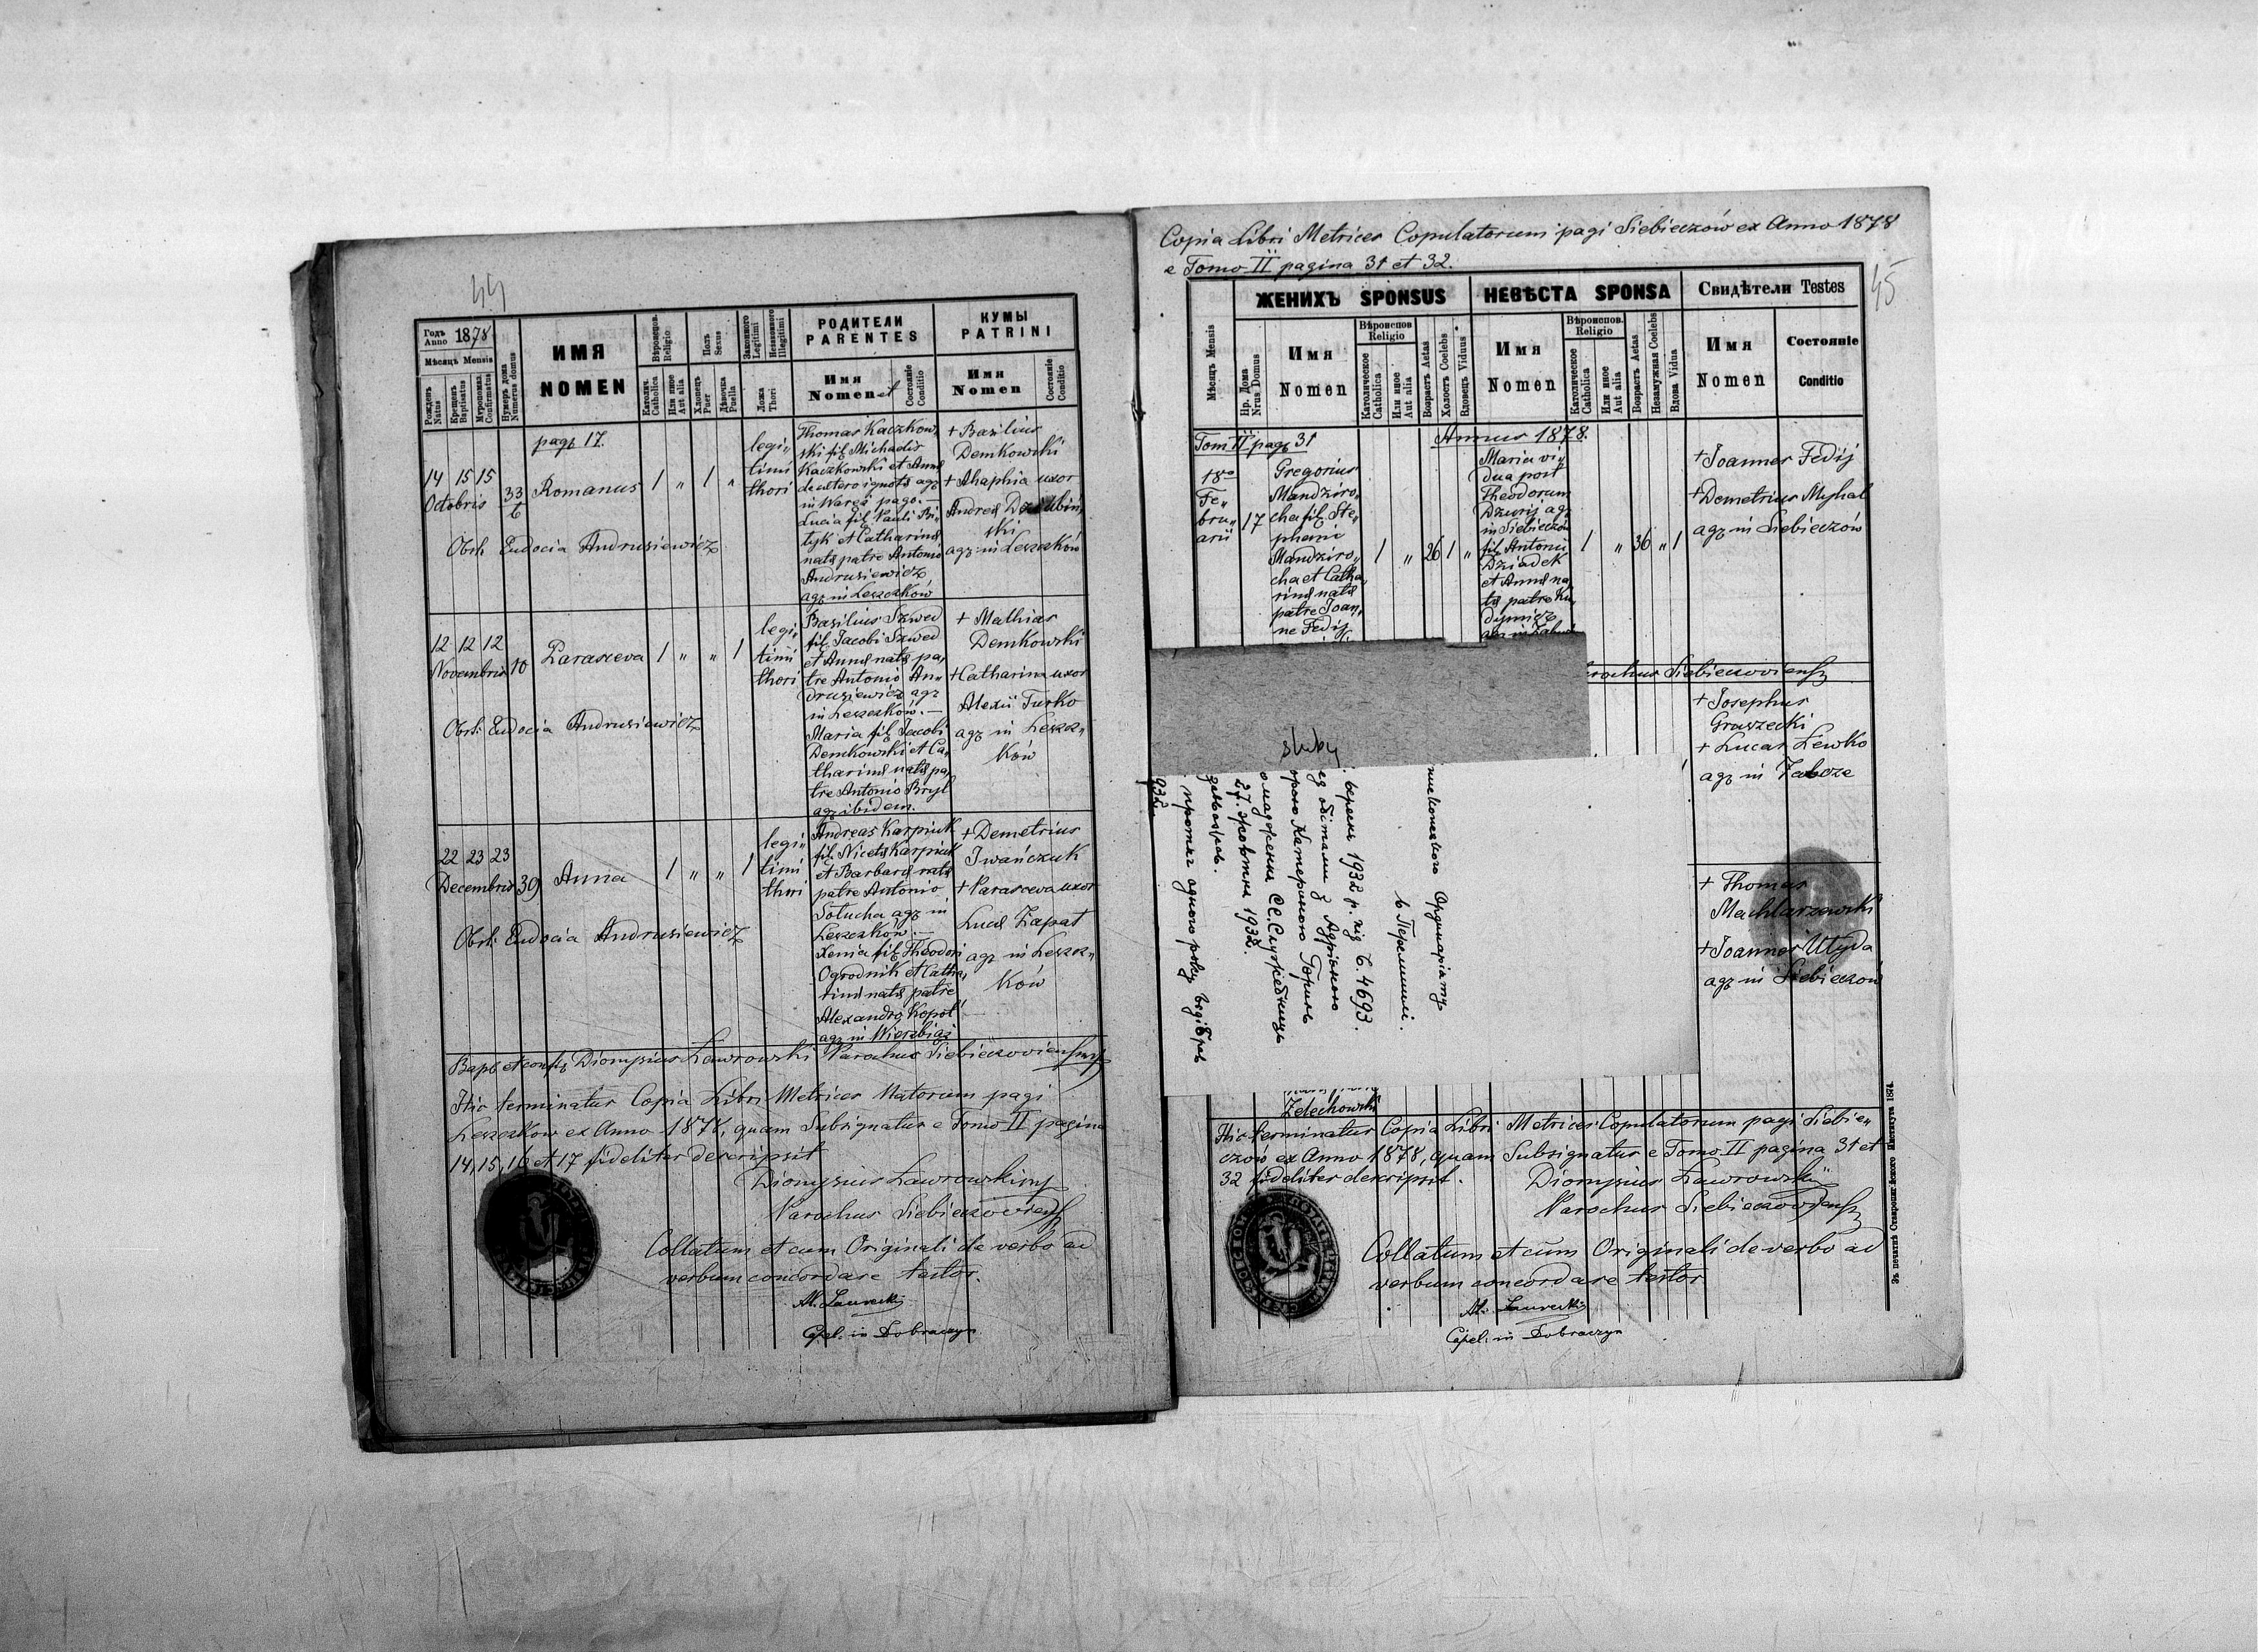 44
Годъ Anno 1878
Мѣсяцъ Mensis
Рожденъ Natus
Крещенъ Baptisatus
Муропомаз. Confirmatus
Нумеръ дома Numerus domus
ИМЯ
NOMEN
Вѣроиспов. Religio
Католич. Catholica
Или иное Aut alia
Полъ Sexus
Хлопецъ Puer
Дѣвочка Puella
Законного Legitimi
Незаконного Illegitimi
Ложа Thori
РОДИТЕЛИ
PARENTES
Имя
Nomen et
Состояніе Conditio
КУМЫ
PATRINI
Имя
Nomen
Состояніе Conditio
pag. 17.
14 15 15
Octobris
33
6
Romanus
1 „ 1 „
legi„
timi
thori
Thomas Kaczkow„
ski fil. Michaelis
Kaczkowski et Anna
de cetero ignota agr.
in Waręż pago. —
Lucia fil. Pauli Bi„
tyk et Catharina
nata patre Antonio
Andrusiewicz
agr. in Leszczków
+ Basilius
Demkowski
+ Ahaphia uxor
Andrea
ski
agr. in Leszczków
Obst. Eudocia Andrusiewicz
12 12 12
Novembris 10
Parasceva
1 „ „ 1
legi„
timi
thori
Basilius Szwed
fil. Jacobi Szwed
et Anna nata pa„
tre Antonio An„
drusiewicz agr.
in Leszczków. —
Maria fil. Jacobi
Demkowski et Ca„
tharina nata pa„
tre Antonio Bryl
agr. ibidem.
+ Mathias
Demkowski
+ Catharina uxor
Alexii Turko
agr. in Leszcz„
ków
Obst. Eudocia Andrusiewicz
22 23 23
Decembris 39
Anna
1 „ „ 1
legi„
timi
thori
Andreas Karpiuk
fil. Niceta Karpiuk
et Barbara nata
patre Antonio
Sołucha agr. in
Leszczków. —
Xenia fil. Theodori
Ogrodnik et Catha„
rina nata patre
Alexandro Kopot
agr. in Wierzbiąż
+ Demetrius
Iwańczuk
+ Parasceva uxor
Luca Łapat
agr. in Leszcz„
ków
Obst. Eudocia Andrusiewicz
Bapt. et conf. Dionysius Ławrowski Parochus Siebieczoviensis
Hic terminatur Copia Libri Metrices Natorum pagi
Leszczków ex Anno 1878, quam Subsignatus e Tomo II pagina
14, 15, 16 et 17 fideliter descripsit
Dionysius Ławrowski
Parochus Siebieczoviensis
Collatum et cum Originali de verbo ad
verbum concordare testor.
Capel. in Dobraczyn
Copia Libri Metrices Copulatorum pagi Siebieczów ex Anno 1878
e Tomo II pagina 31 et 32.
45
Мѣсяцъ Mensis
ЖЕНИХЪ SPONSUS
Нр. Дома Nrus Domus
Имя
Nomen
Вѣроиспов Religio
Католическое Catholica
Или иное Aut alia
Возрастъ Aetas
Холостъ Coelebs
Вдовецъ Viduus
НЕВѢСТА SPONSA
Имя
Nomen
Вѣроиспов. Religio
Католическое Catholica
Или иное Aut alia
Возрастъ Aetas
Незамужная Coelebs
Вдова Vidua
Свидѣтели Testes
Имя
Nomen
Состояніе
Conditio
Tom II pag. 31
Annus 1878.
18a
Fe„
bru„
arii
17
Gregorius
Mandziro„
cha fil. Ste„
phani
Mandziro„
cha et Catha„
rina nata
patre Joan„
ne Fedij
1 „ 26 1 „
Maria vi„
dua post
Theodorum
Dzurij agr.
in Siebieczów
fil. Antonii
Dziadek
et Anna na„
ta patre Ku„
dynicz
1 „ 36 „ 1
+ Joannes Fedij
+ Demetrius Myhal
agr. in Siebieczów
rochus Siebieczoviensis
+ Josephus
Graszecki
+ Lucas Lewko
agr. in Zabcze
+ Thomas
Machlarzewski
+ Joannes Utyda
agr. in Siebieczów
śluby
Ординаріяту
в Перемишлі.
вересня 1932 р. під Ч. 4693.
Катериною Горинь
СС.Служебниць
27. жовтня 1932.
протяг одного року
932.
Zelechowski
Hic terminatur Copia Libri Metrices Copulatorum pagi Siebie„
czów ex Anno 1878, quam Subsignatus e Tomo II pagina 31 et
32 fideliter descripsit.
Dionysius Ławrowski
Parochus Siebieczoviensis
Collatum et cum Originali de verbo ad
verbum concordare testor
Capel. in Dobraczyn
Зъ печатнѣ Ставропигійского Института 1874.